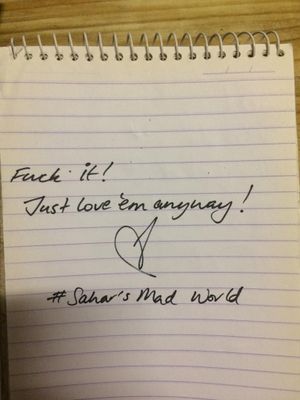 Fuck it!
Just love 'em anyway!
#Sahar's Mad World